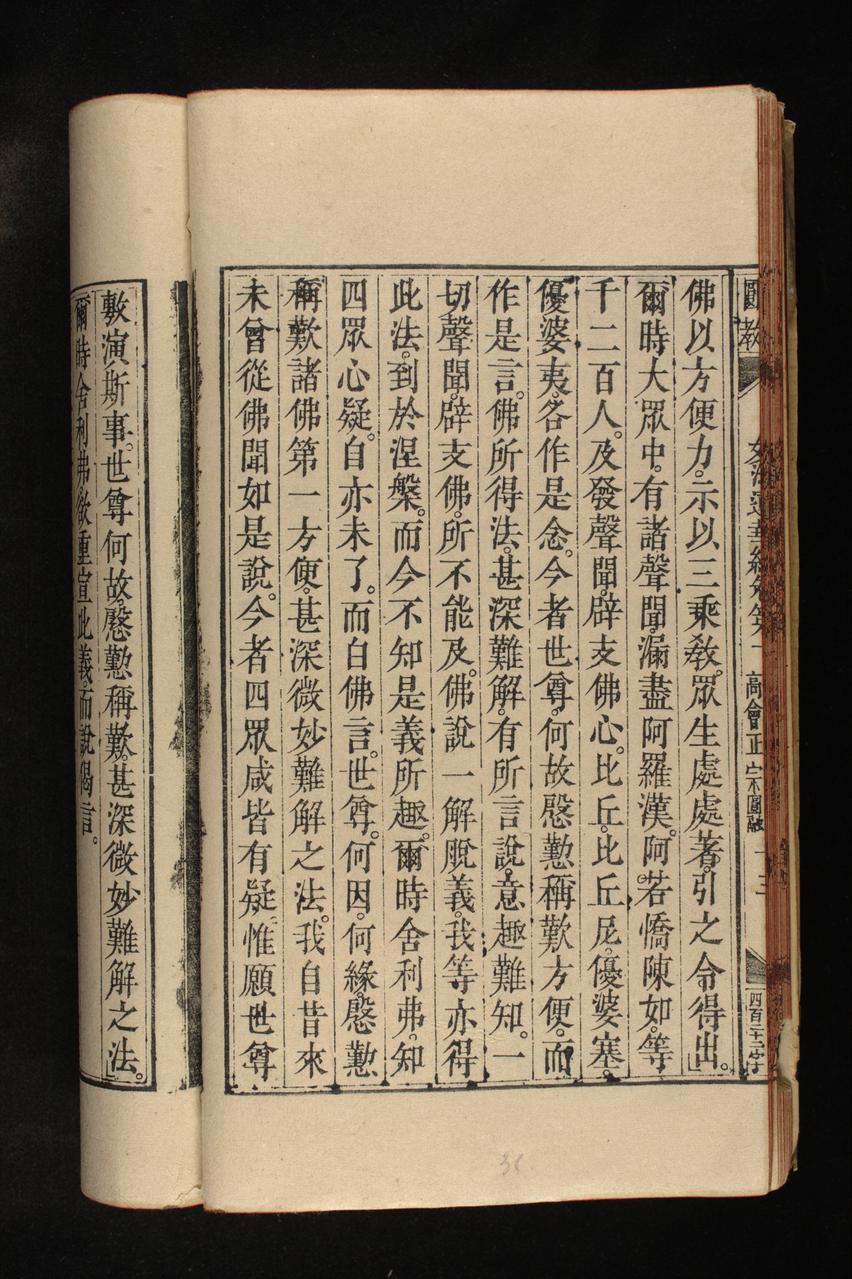 圓教 妙法蓮華經卷第一 高會正宗不圓融 十三 四百二十二字
佛以方便力。示以三乘教。眾生處處著。引之令得出。
爾時大眾中。有諸聲聞。漏盡阿羅漢。阿若憍陳如。等
千二百人。及發聲聞。辟支佛心。比丘。比丘尼。優婆塞。
優婆夷。各作是念。今者世尊。何故慇懃稱歎方便。而
作是言。佛所得法。甚深難解。有所言說。意趣難知。一
切聲聞。辟支佛。所不能及。佛說一解脫義。我等亦得
此法。到於涅槃。而今不知是義所趣。爾時舍利弗。知
四眾心疑。自亦未了。而白佛言。世尊。何因。何緣。慇懃
稱歎諸佛第一方便。甚深微妙難解之法。我自昔來
未曾從佛聞如是說。今者四眾咸皆有疑。惟願世尊
敷演斯事。世尊何故。慇懃稱歎。甚深微妙難解之法。
爾時舍利弗。欲重宣此義。而說偈言。
36